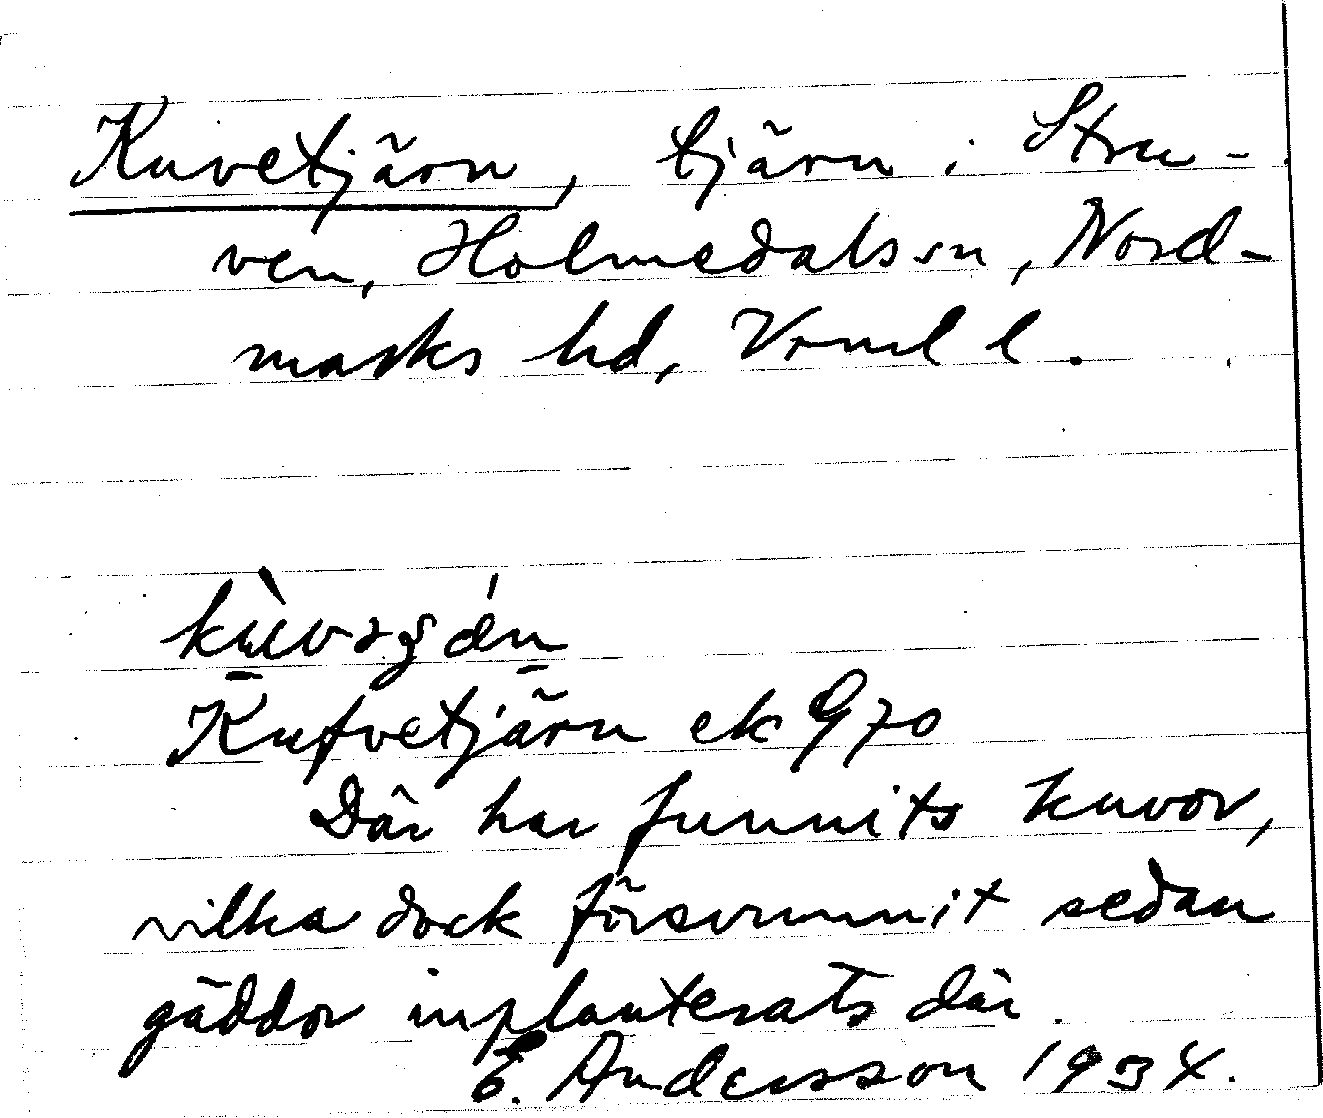 Kuvetjärn, tjärn i Stru-
ven, Holmedals sn, Nord-
marks hd, Vrml l.
Kufvetjärn ek G 70
Där har funnits kuvor,
vilka dock försvunnit sedan
gäddor inplanterats där.
E. Andersson 1934.